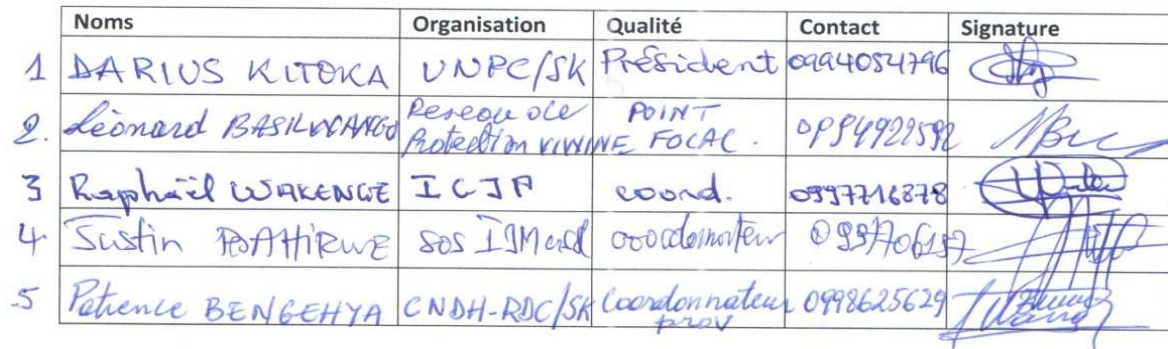 Noms Organisation Qualité Contact Signature
1 DARIUS KITOKA UNPC/SK Président 0994054796
2. Léonard BASILWANGO Reseau de Protection VIWINE POINT FOCAL. 0994922592
3 Raphaël WAKENGE ICJP coord. 0997716878
4 Justin coordonnateur
5 Patience BENGEHYA CNDH-RDC/SK Coordonnateur prov 0998625629